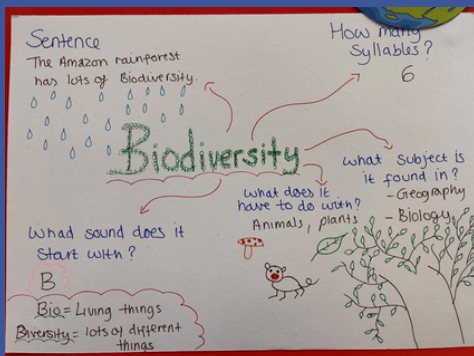 Sentence
The Amazon rainforest
has lots of Biodiversity.
How many
Syllables?
6
Biodiversity
What subject is
it found in?
- Geography
- Biology
What does it
have to do with?
Animals, plants
Whad sound does it
Start with?
B
Bio = Living things
Biversity = lots of different
things